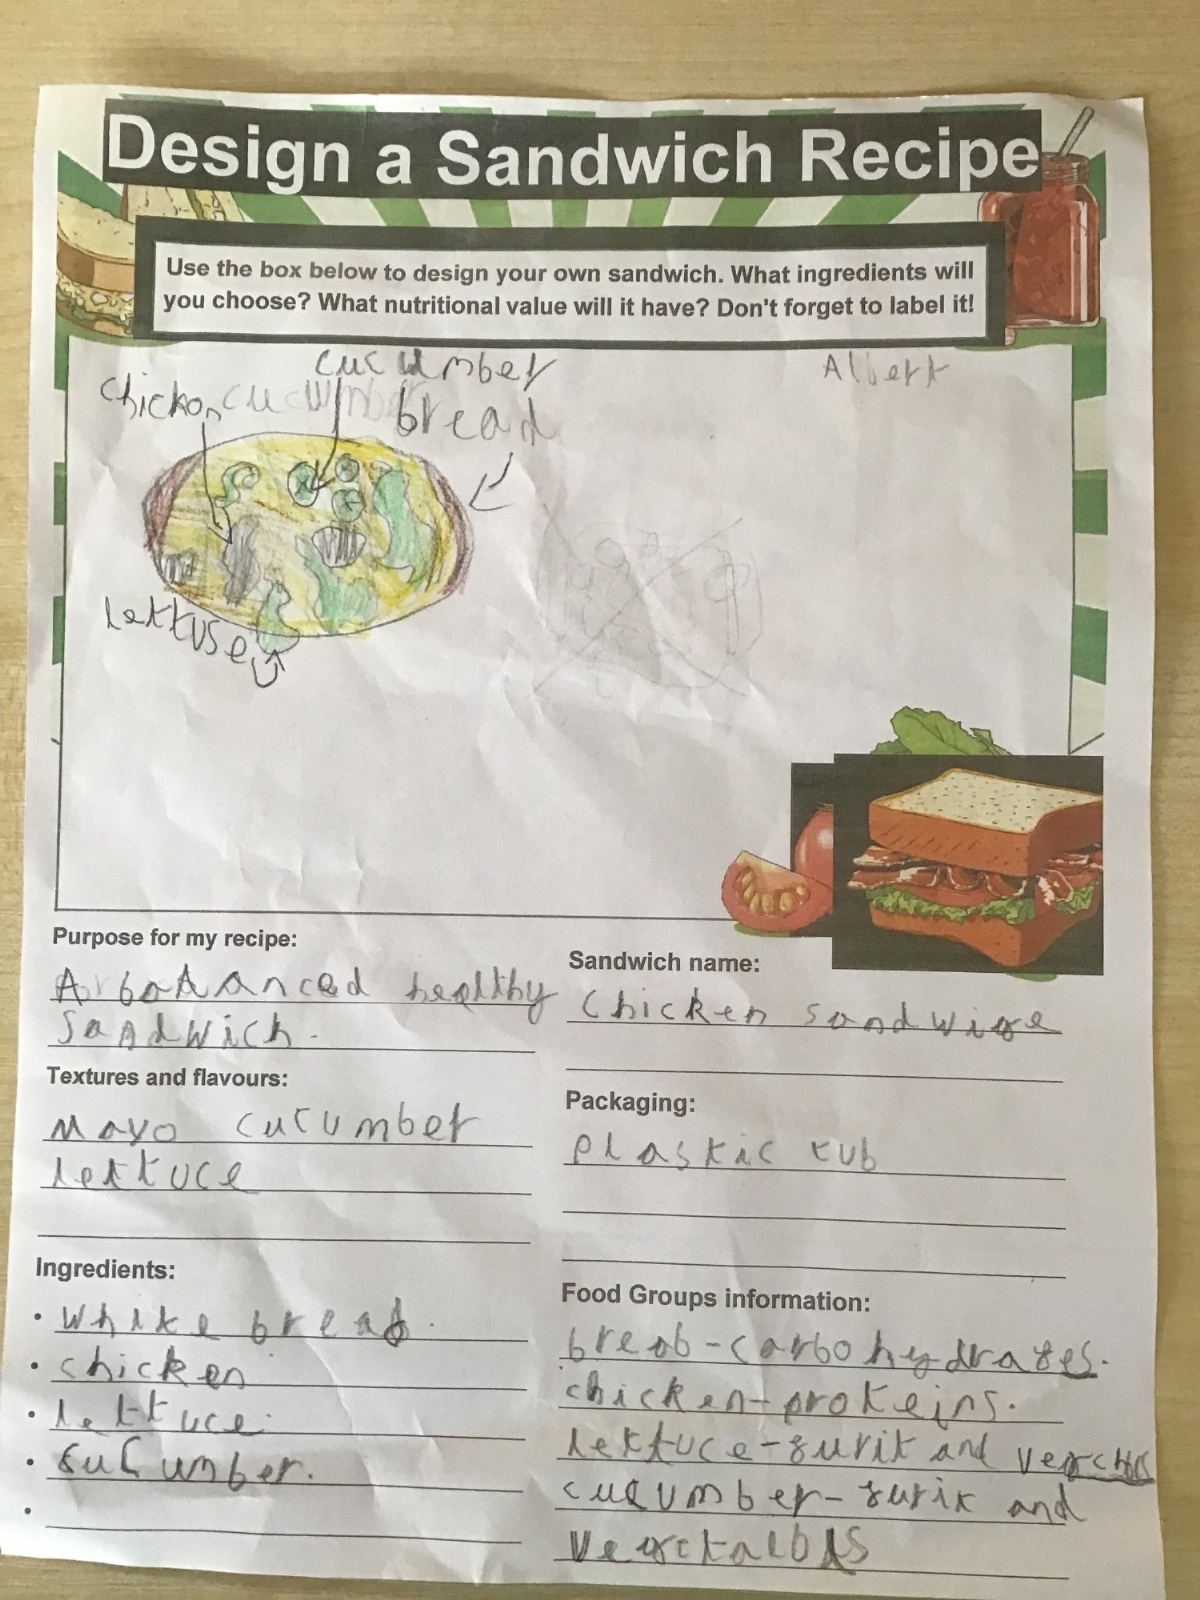 Design a Sandwich Recipe
Use the box below to design your own sandwich. What ingredients will
you choose? What nutritional value will it have? Don't forget to label it!
Albert
cucumber
chicken cucumber
bread
lettuse
Purpose for my recipe:
A balanced healthy
sandwich.
Sandwich name:
chicken sandwige
Textures and flavours:
Mayo cucumber
lettuce
Packaging:
plastic tub
Ingredients:
• white bread.
• chicken
• lettuce.
• cucumber.
•
Food Groups information:
breab-carbohydrates.
chicken-proteins.
lettuce-furit and
cucumber-furit and